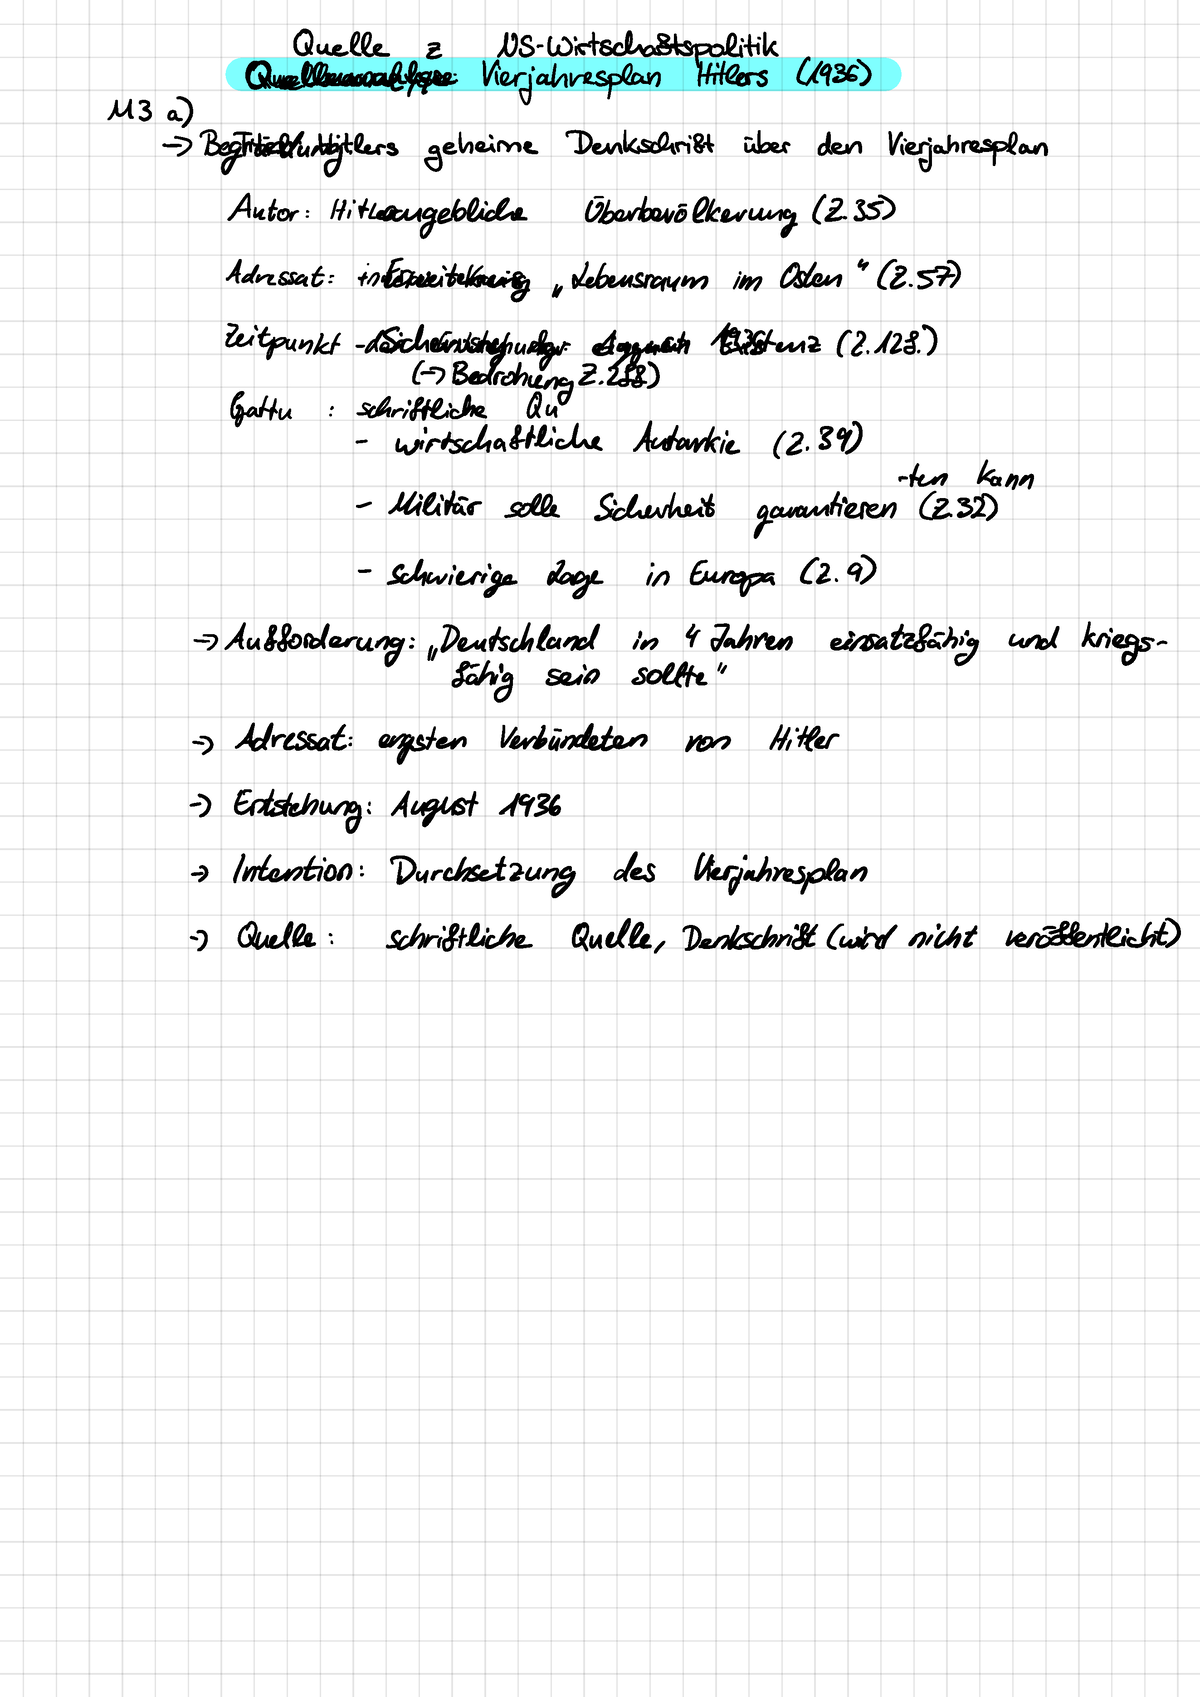 Quelle z NS-Wirtschaftspolitik
Vierjahresplan Hitlers (1936)
M3 a)
→ Hitlers geheime Denkschrift über den Vierjahresplan
Autor: angebliche Überbevölkerung (Z.35)
Adressat: „Lebensraum im Osten" (Z.57)
Zeitpunkt - (Z.12f.)
(→ Bedrohung Z.2ff)
Gattu : schriftliche Qu
- wirtschaftliche Autarkie (Z.39)
-ten kann
- Militär solle Sicherheit garantieren (Z.32)
- schwierige Lage in Europa (Z.9)
→ Aufforderung: „Deutschland in 4 Jahren einsatzfähig und kriegs-
fähig sein sollte"
→ Adressat: engsten Verbündeten von Hitler
→ Entstehung: August 1936
→ Intention: Durchsetzung des Vierjahresplan
→ Quelle: schriftliche Quelle, Denkschrift (wird nicht veröffentlicht)